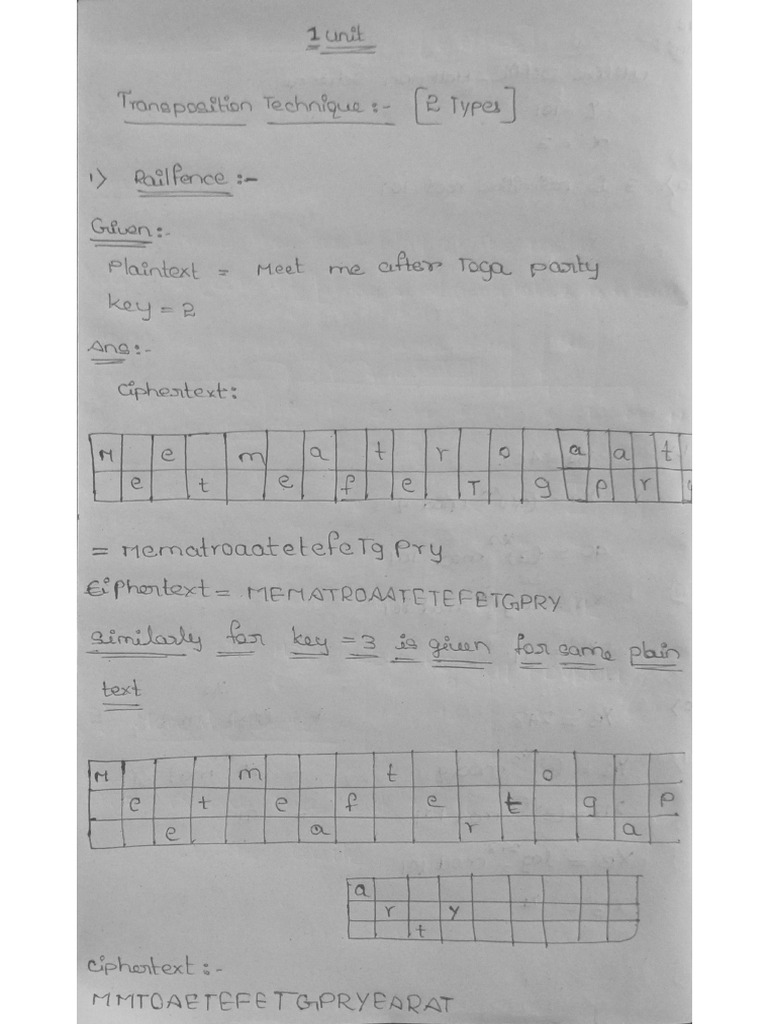 1 Unit
Transposition Technique:- [2 Types]
1) Railfence:-
Given:-
Plaintext = Meet me after Toga party
Key = 2
Ans:-
Ciphertext:
M e m a t r o a a t
e t e f e T g p r y
= MematroaatetefeTg Pry
Ciphertext = MEMATROAATETEFETGPRY
Similarly for key = 3 is given for same plain
text
M m t o
e t e f e t g p
e a r a
a
r y
t
Ciphertext:-
MMTOAETEFETGPRYEARAT